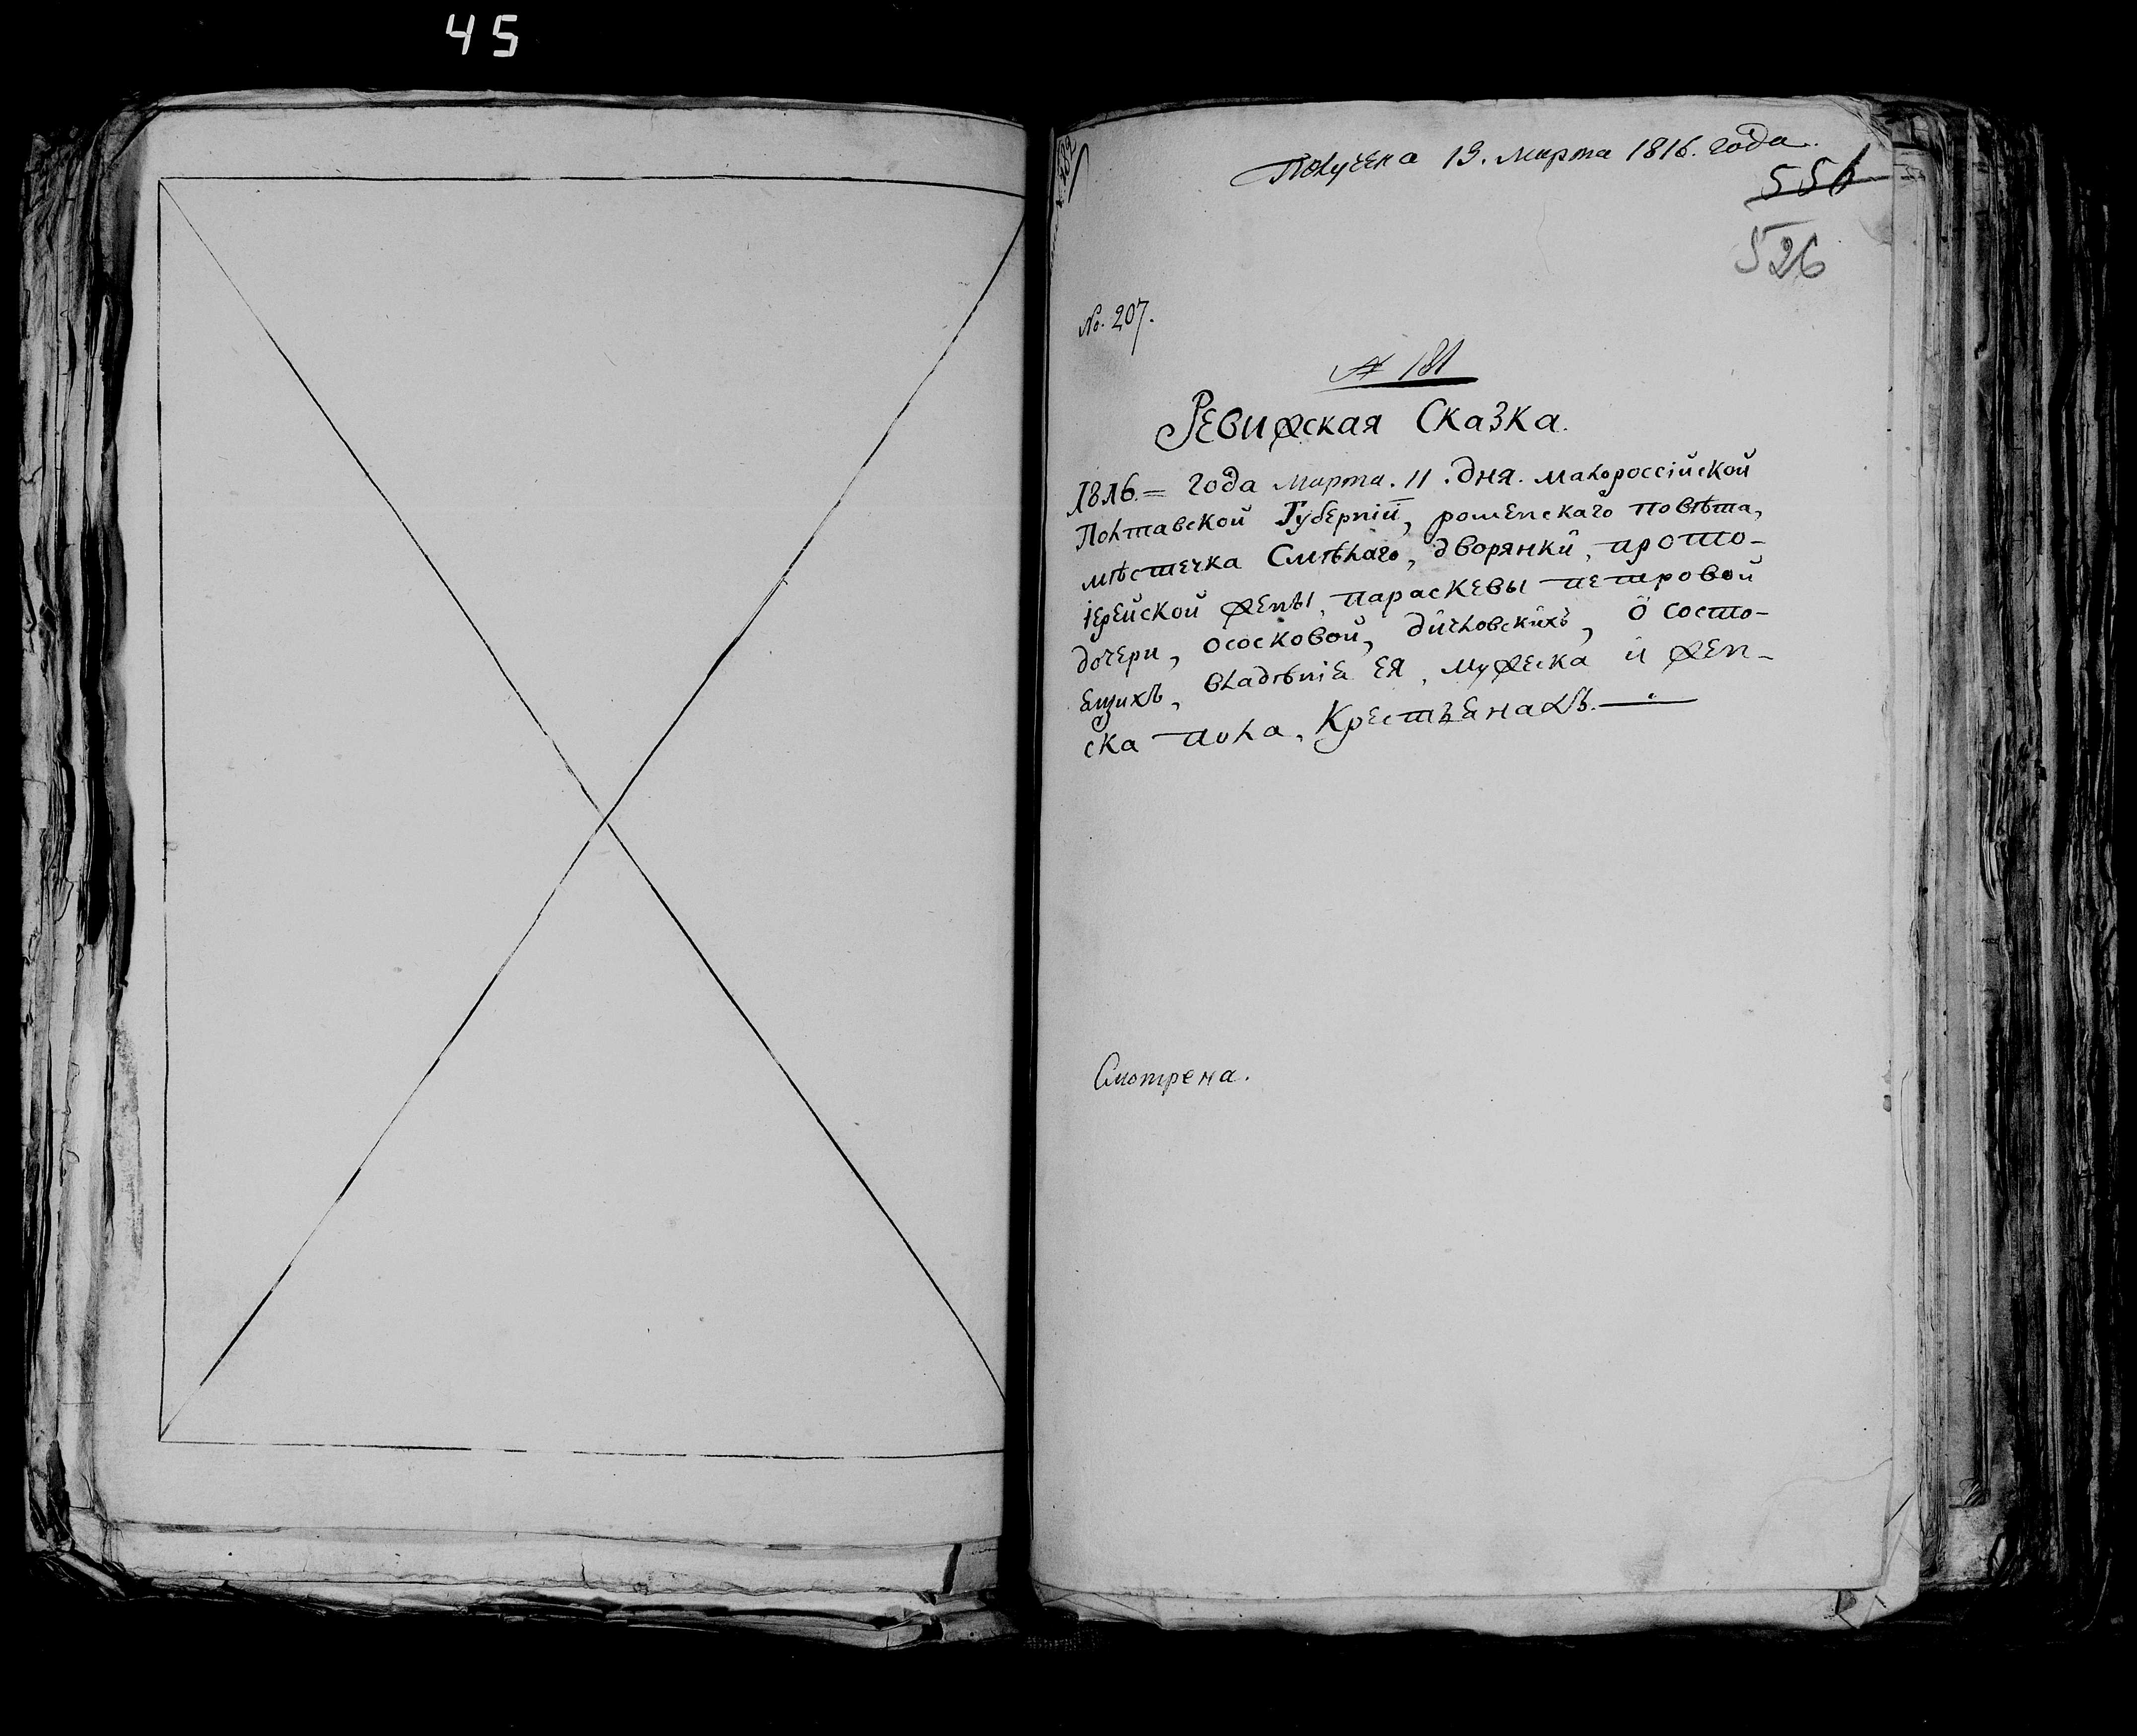 45
Получена 13. Марта 1816. года.
556
526
No. 207.
№ 181
Ревижская Сказка.
1816.= года Марта. 11. дня. малороссійской
Полтавской Губерніи, роменскаго повѣта,
мѣстечка Смѣлаго, дворянки, прото-
іерейской жены, параскевы петровой
дочери, ососковой, дичковскихъ, о состо-
ещихъ, владѣнiе ея, мужеска и жен-
ска пола, Крестьянахъ.
Смотрена.